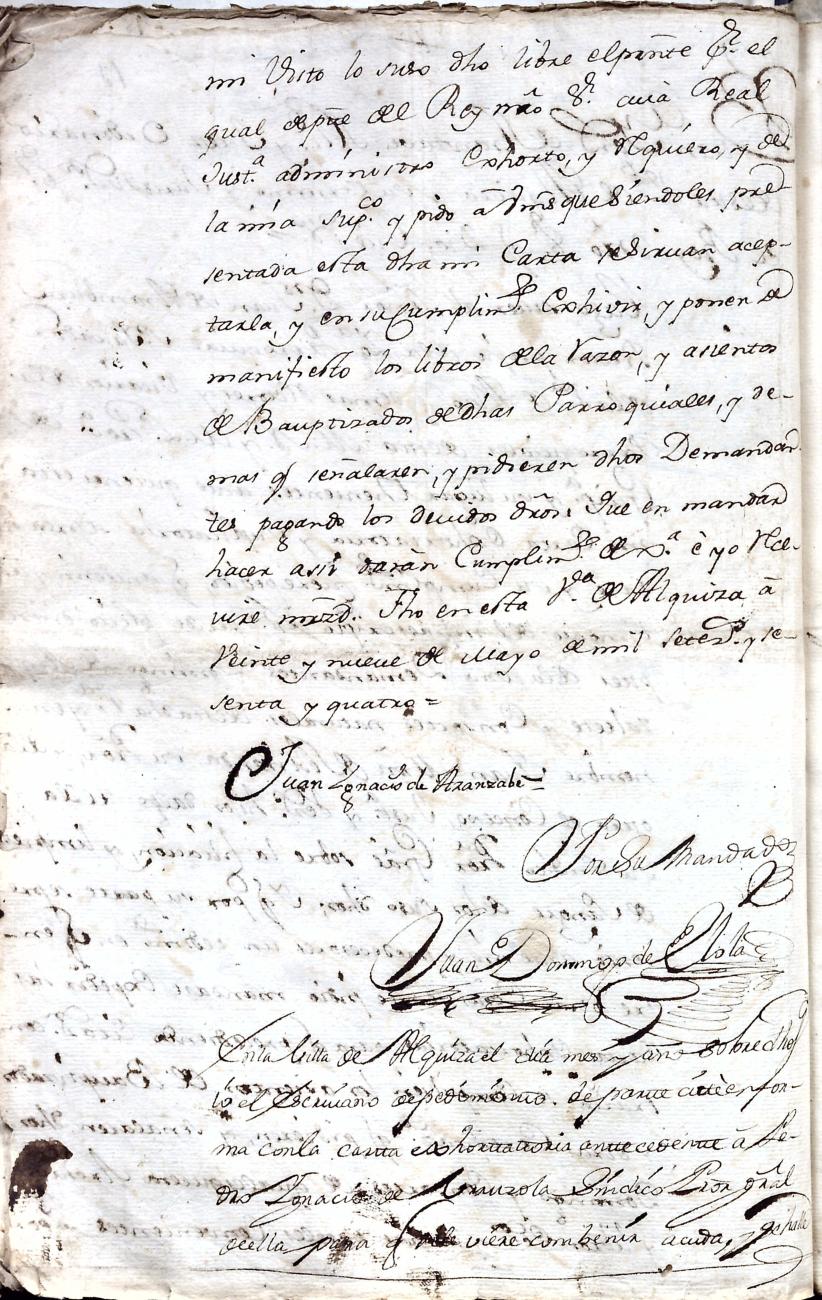 mi Visto lo suso dho libre el presẽte Pr. el
qual de pte del Rey nr̃o Sr. cuia Real
Just.ª administro Exhorto, y Rquiero, y de
la mia sup.co y pido â Vms que siendoles pre-
sentada esta dha mi Carta se sirvan acep-
tarla, y en su Cumplim.to Exhivir, y poner de
manifiesto los libros de la razon, y asientos
de Bauptizados de dhas Parroquiales, y de-
mas q señalaren, y pidieren dhos Demandan-
tes pagando los devidos dros: que en mandar
hacer asi daràn Cumplim.to à è yo Rce-
vire mrzd. Fho en esta V.ª de Alquiza â
Veinte y nueve de Mayo de mil setez.s y se-
senta y quatro =
Juan Ignacio de Aranzabe
Por Su Mandado
Juan Domingo de Elola
En la Villa de Alquiza el dia mes y año sobre dho
Io el Escrivano de pedimento de parte cite en for-
ma con la carta exhortatoria antecedente â Pe-
dro Ignacio de Arauzola Sindico Pror gral
de ella para q si le viere combenir acuda, y